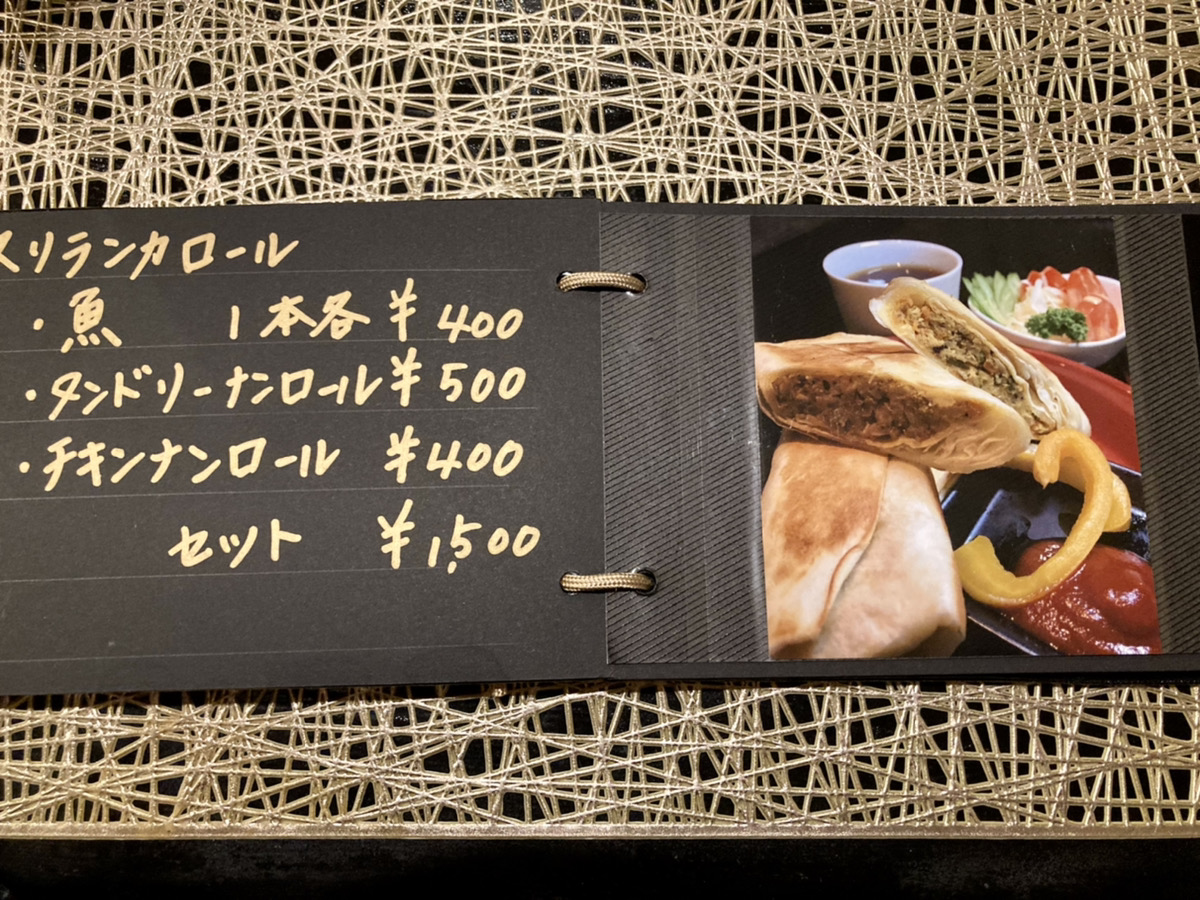 スリランカロール
・魚 1本各 ¥400
・タンドリーナンロール ¥500
・チキンナンロール ¥400
セット ¥1,500